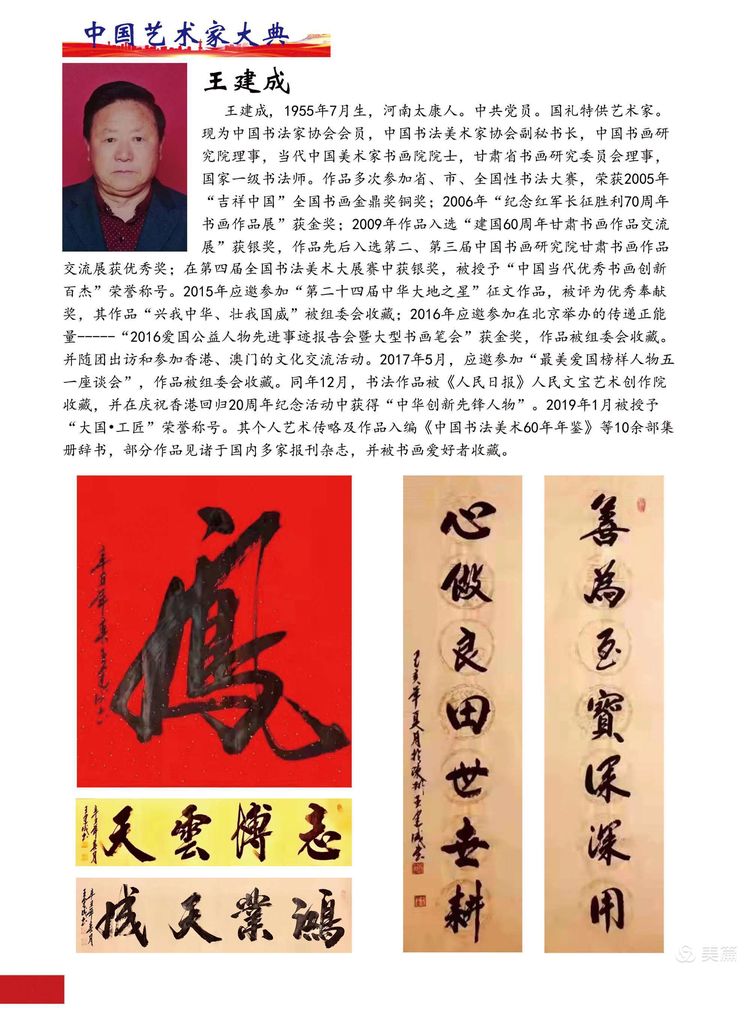 中国艺术家大典
王建成
王建成，1955年7月生，河南太康人。中共党员。国礼特供艺术家。
现为中国书法家协会会员，中国书法美术家协会副秘书长，中国书画研
究院理事，当代中国美术家书画院院士，甘肃省书画研究委员会理事，
国家一级书法师。作品多次参加省、市、全国性书法大赛，荣获2005年
“吉祥中国”全国书画金鼎奖铜奖；2006年“纪念红军长征胜利70周年
书画作品展”获金奖；2009年作品入选“建国60周年甘肃书画作品交流
展”获银奖，作品先后入选第二、第三届中国书画研究院甘肃书画作品
交流展获优秀奖；在第四届全国书法美术大展赛中获银奖，被授予“中国当代优秀书画创新
百杰”荣誉称号。2015年应邀参加“第二十四届中华大地之星”征文作品，被评为优秀奉献
奖，其作品“兴我中华、壮我国威”被组委会收藏；2016年应邀参加在北京举办的传递正能
量-----“2016爱国公益人物先进事迹报告会暨大型书画笔会”获金奖，作品被组委会收藏。
并随团出访和参加香港、澳门的文化交流活动。2017年5月，应邀参加“最美爱国榜样人物五
一座谈会”，作品被组委会收藏。同年12月，书法作品被《人民日报》人民文宝艺术创作院
收藏，并在庆祝香港回归20周年纪念活动中获得“中华创新先锋人物”。2019年1月被授予
“大国•工匠”荣誉称号。其个人艺术传略及作品入编《中国书法美术60年年鉴》等10余部集
册辞书，部分作品见诸于国内多家报刊杂志，并被书画爱好者收藏。
善為至寶深深用
心做良田世世耕
志博雲天
鴻業天成
美篇